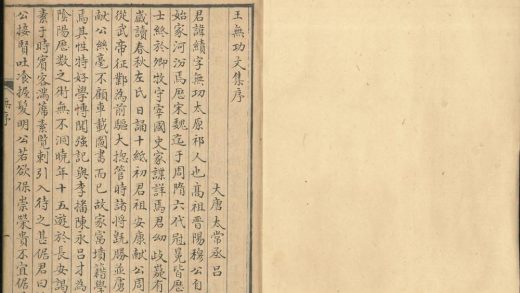 王無功文集序
大唐太常丞呂
君諱績字無功太原祁人也高祖晉陽穆公自
始家河汾焉歷宋魏迄于周隋六代冠冕皆歷
士終於卿牧守宰國史家諜詳焉君幼岐嶷有
歲讀春秋左氏日誦十紙初君祖安康獻公周
從武帝征鄴為前驅大揔管時諸將既勝並虜
獻公絲毫不顧車載圖書而已故家富墳籍學
焉其性特好學博聞強記與李播陳永呂才為
陰陽歷數之術無不洞曉年十五遊於長安謁
素于時賓客滿席素覽刺引入待之甚倨君曰
公接賢吐飡握髮明公若欲保崇榮貴不宜倨
序
一